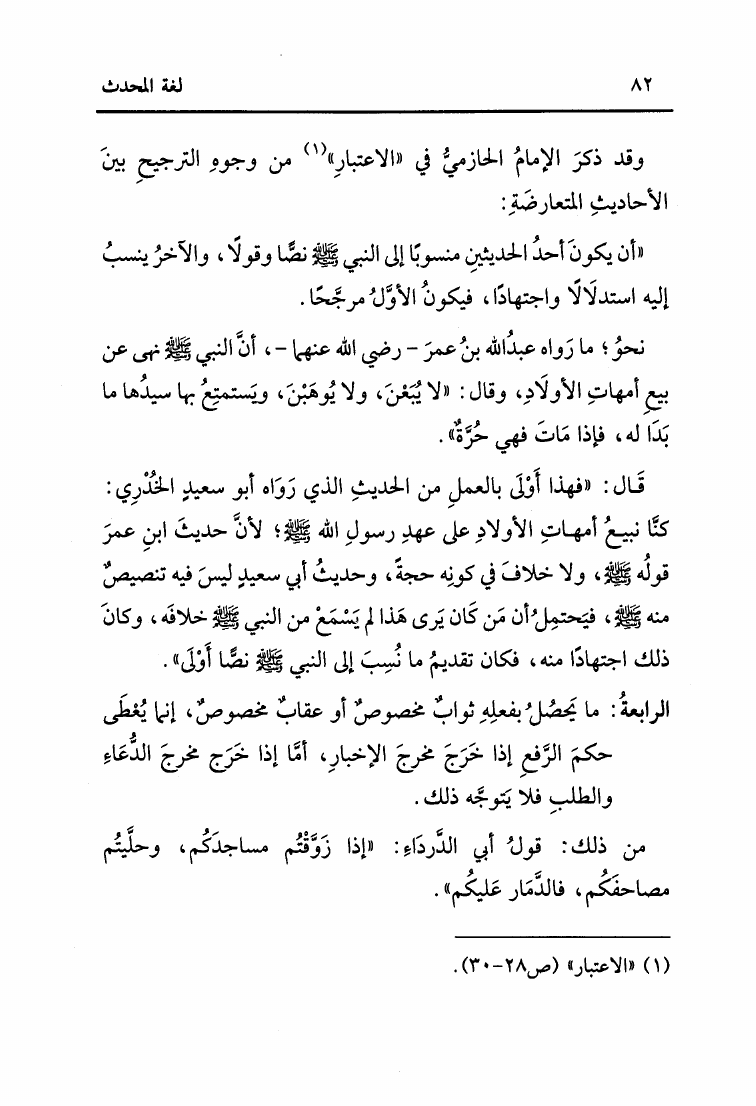 ٨٢ لغة المحدث
وقد ذكرَ الإمامُ الحازميُّ في «الاعتبارِ»(١) من وجوهِ الترجيحِ بينَ
الأحاديثِ المتعارضَةِ:
«أن يكونَ أحدُ الحديثينِ منسوبًا إلى النبي ﷺ نصًّا وقولًا، والآخرُ ينسبُ
إليه استدلَالًا واجتهادًا، فيكونُ الأوَّلُ مرجَّحًا.
نحوُ؛ ما رَواه عبدُالله بنُ عمرَ - رضي الله عنهما -، أنَّ النبي ﷺ نهى عن
بيعِ أمهاتِ الأولَادِ، وقال: «لا يُبَعْنَ، ولا يُوهَبْنَ، ويَستمتِعُ بها سيدُها ما
بَدَا له، فإذا مَاتَ فهي حُرَّةٌ».
قَال: «فهذا أَوْلَى بالعملِ من الحديثِ الذي رَوَاه أبو سعيدٍ الخُدْرِي:
كنَّا نبيـعُ أمهـاتِ الأولادِ على عهدِ رسولِ الله ﷺ؛ لأنَّ حديثَ ابنِ عمرَ
قولُه ﷺ، ولا خلافَ في كونِه حجةً، وحديثُ أبي سعيدٍ ليسَ فيه تنصيصٌ
منه ﷺ، فيَحتمِلُ أن مَن كَان يَرى هَذا لم يَسْمَعْ من النبي ﷺ خلافَه، وكانَ
ذلك اجتهادًا منه، فكان تقديمُ ما نُسِبَ إلى النبي ﷺ نصًّا أَوْلَى».
الرابعةُ: ما يَحصُلُ بفعلِهِ ثوابٌ مخصوصٌ أو عقابٌ مخصوصٌ، إنما يُعْطَى
حكمَ الرَّفعِ إذا خَرَجَ مخرجَ الإخبارِ، أمَّا إذا خَرَج مخرجَ الدُّعَاءِ
والطلبِ فلا يَتوجَّه ذلك.
من ذلك: قولُ أبي الدَّردَاءِ: «إذا زَوَّقْتُم مساجدَكُم، وحلَّيتُم
مصاحفَكُم، فالدَّمَار عَليكُم».
(١) «الاعتبار» (ص٢٨-٣٠).